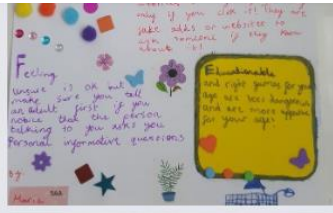 only if you click it! They are
fake adds or websites so
ask someone if they know
about it!
Feeling
unique is ok but
make sure you tell
an adult first if you
notice that the person
talking to you asks you
Personal informative questions
Educationable
and right games for your
age are less dangerous
and are more
for your age!
by